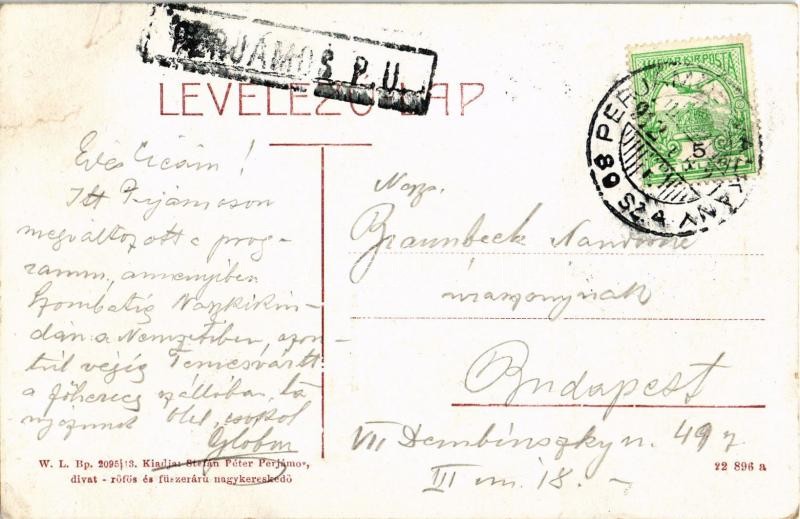 PERJÁMOS P. U.
LEVELEZŐ-LAP
MAGYAR KIR. POSTA
5
89 SZ.4
Édes Cicám!
Itt Perjámoson
megváltozott a prog-
ramm, amenyiben
Szombatig Nagykikin-
dán a Nemzetiben, azon-
túl végig Temesvártt
a főherceg szállóban, ta
nyázunk Ölel, csókol
Nagys.
Braunbeck Nándorné
úrasszonynak
Budapest
VII Dembinszky u. 49
III em. 18. -
W. L. Bp. 2095|13. Kiadja: Stefan Péter Perjámos,
divat - rőfös és fűszeráru nagykereskedő
22 896 a